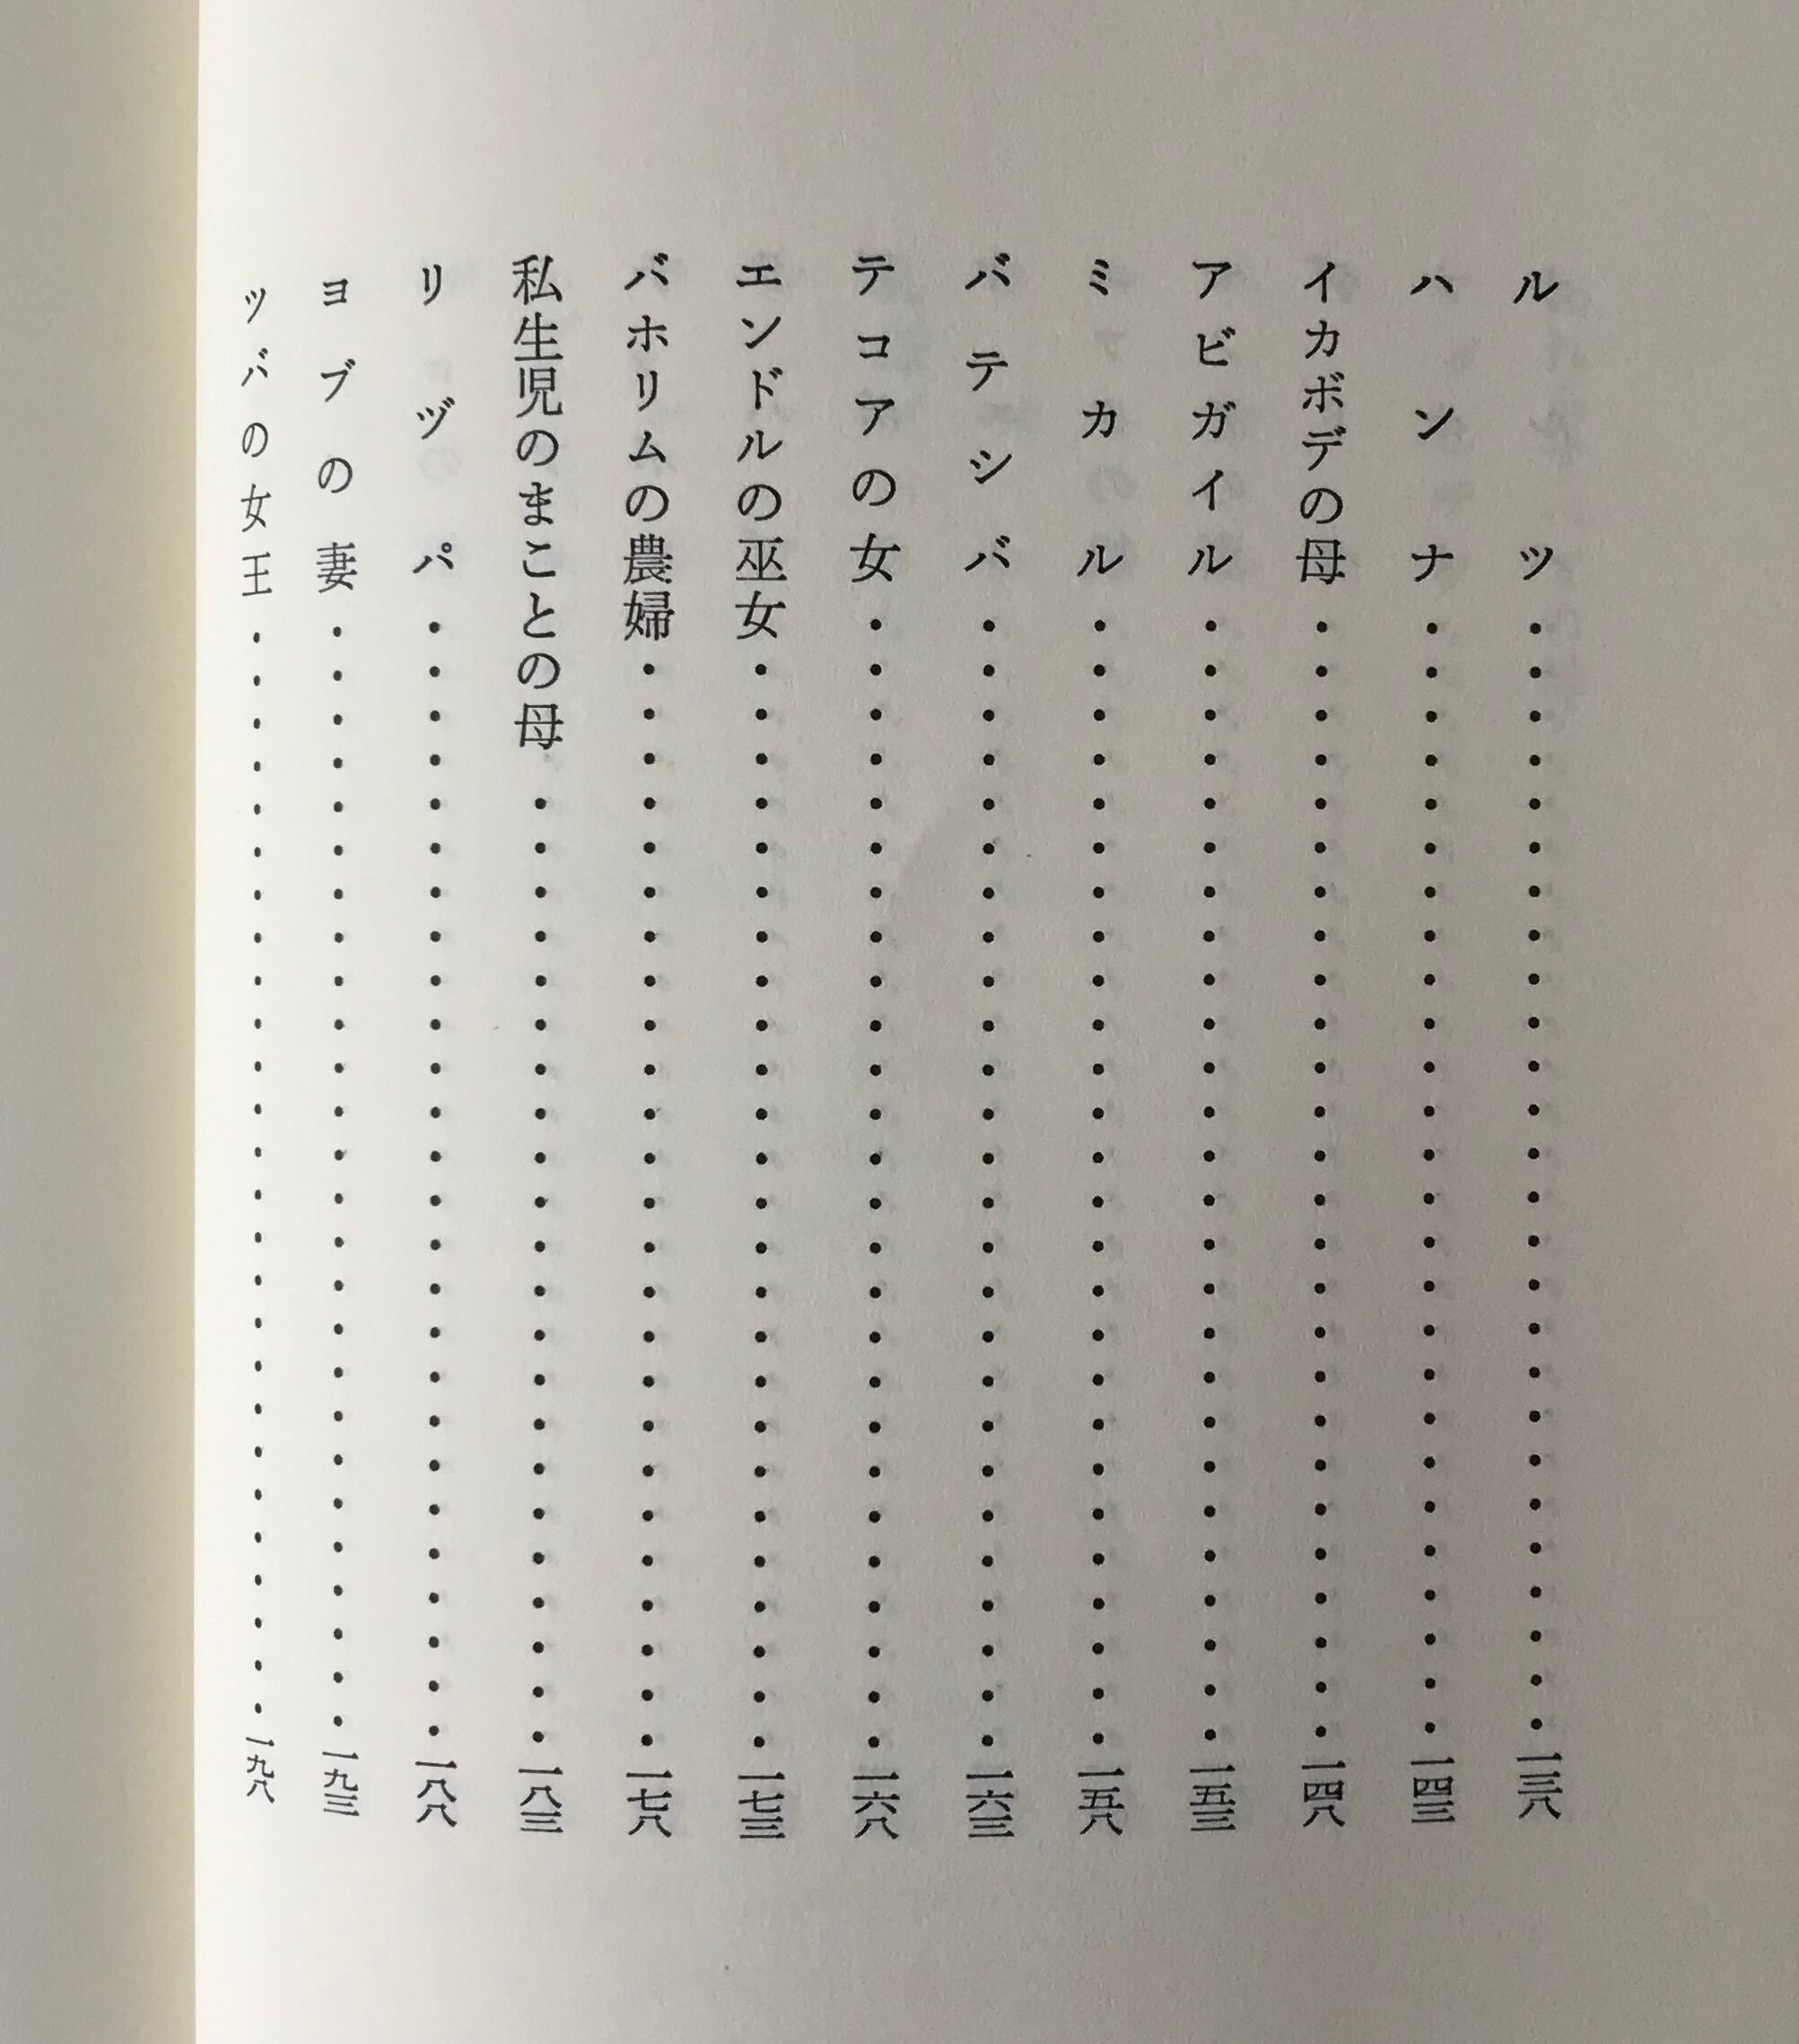 ルツ・・・・・・・・・・・・・・・・・・・・・・・・・・一三八
ハンナ・・・・・・・・・・・・・・・・・・・・・・・・・・一四三
イカボデの母・・・・・・・・・・・・・・・・・・・・・・・・・・一四八
アビガイル・・・・・・・・・・・・・・・・・・・・・・・・・・一五三
ミカル・・・・・・・・・・・・・・・・・・・・・・・・・・一五八
バテシバ・・・・・・・・・・・・・・・・・・・・・・・・・・一六三
テコアの女・・・・・・・・・・・・・・・・・・・・・・・・・・一六八
エンドルの巫女・・・・・・・・・・・・・・・・・・・・・・・・・一七三
バホリムの農婦・・・・・・・・・・・・・・・・・・・・・・・・・一七八
私生児のまことの母・・・・・・・・・・・・・・・・・・・・・・一八三
リヅパ・・・・・・・・・・・・・・・・・・・・・・・・・・一八八
ヨブの妻・・・・・・・・・・・・・・・・・・・・・・・・・・一九三
ツバの女王・・・・・・・・・・・・・・・・・・・・・・・・・・一九八